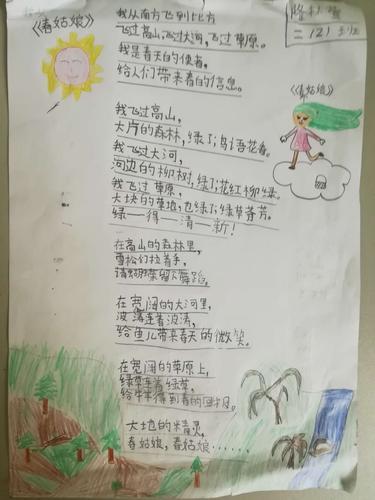 《春姑娘》
二（2）班
我从南方飞到北方
飞过高山，飞过大河，飞过草原。
我是春天的使者，
给人们带来春的信息。
《春姑娘》
我飞过高山，
大片的森林，绿了，鸟语花香。
我飞过大河，
河边的柳树，绿了，花红柳绿。
我飞过草原，
大块的草地，也绿了，绿草菁芳。
绿—得—清—新！
在高山的森林里，
雪松们拉着手，
请蝴蝶留下舞蹈。
在宽阔的大河里，
波涛连着波涛，
给鱼儿带来春天的微笑。
在宽阔的草原上，
绿草连着绿草，
给牛羊得到春的回报。
大地的精灵，
春姑娘，春姑娘……